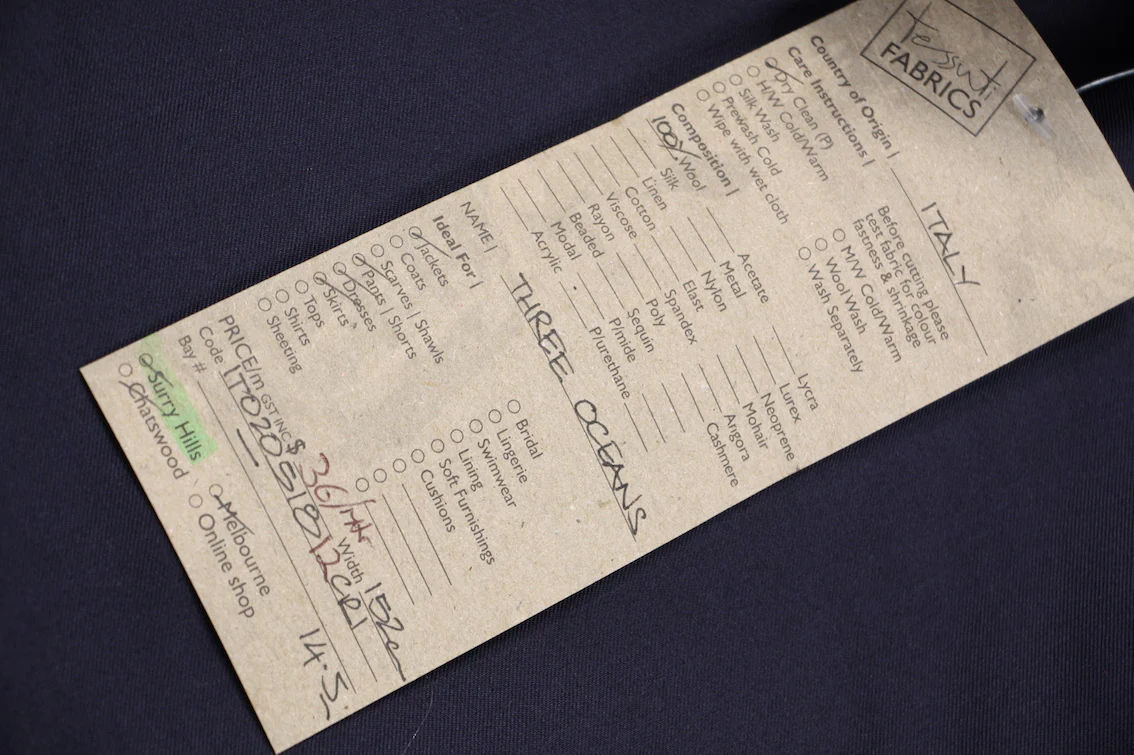 tessuti
FABRICS
Country of Origin | ITALY
Care Instructions |
Dry Clean (P)
H/W Cold/Warm
Silk Wash
Prewash Cold
Wipe with wet cloth
Before cutting please
test fabric for colour
fastness & shrinkage
M/W Cold/Warm
Wool Wash
Wash Separately
Composition |
100% Wool
Silk
Linen
Cotton
Viscose
Rayon
Beaded
Modal
Acrylic
Acetate
Metal
Nylon
Elast
Spandex
Poly
Sequin
P/mide
P/urethane
Lycra
Lurex
Neoprene
Mohair
Angora
Cashmere
NAME | THREE OCEANS
Ideal For |
Jackets
Coats
Scarves | Shawls
Pants | Shorts
Dresses
Skirts
Tops
Shirts
Sheeting
Bridal
Lingerie
Swimwear
Lining
Soft Furnishings
Cushions
PRICE/m GST INC $ 36/mtr Width 152cm
Code
Bay #
14.5
Surry Hills
Chatswood
Melbourne
Online shop